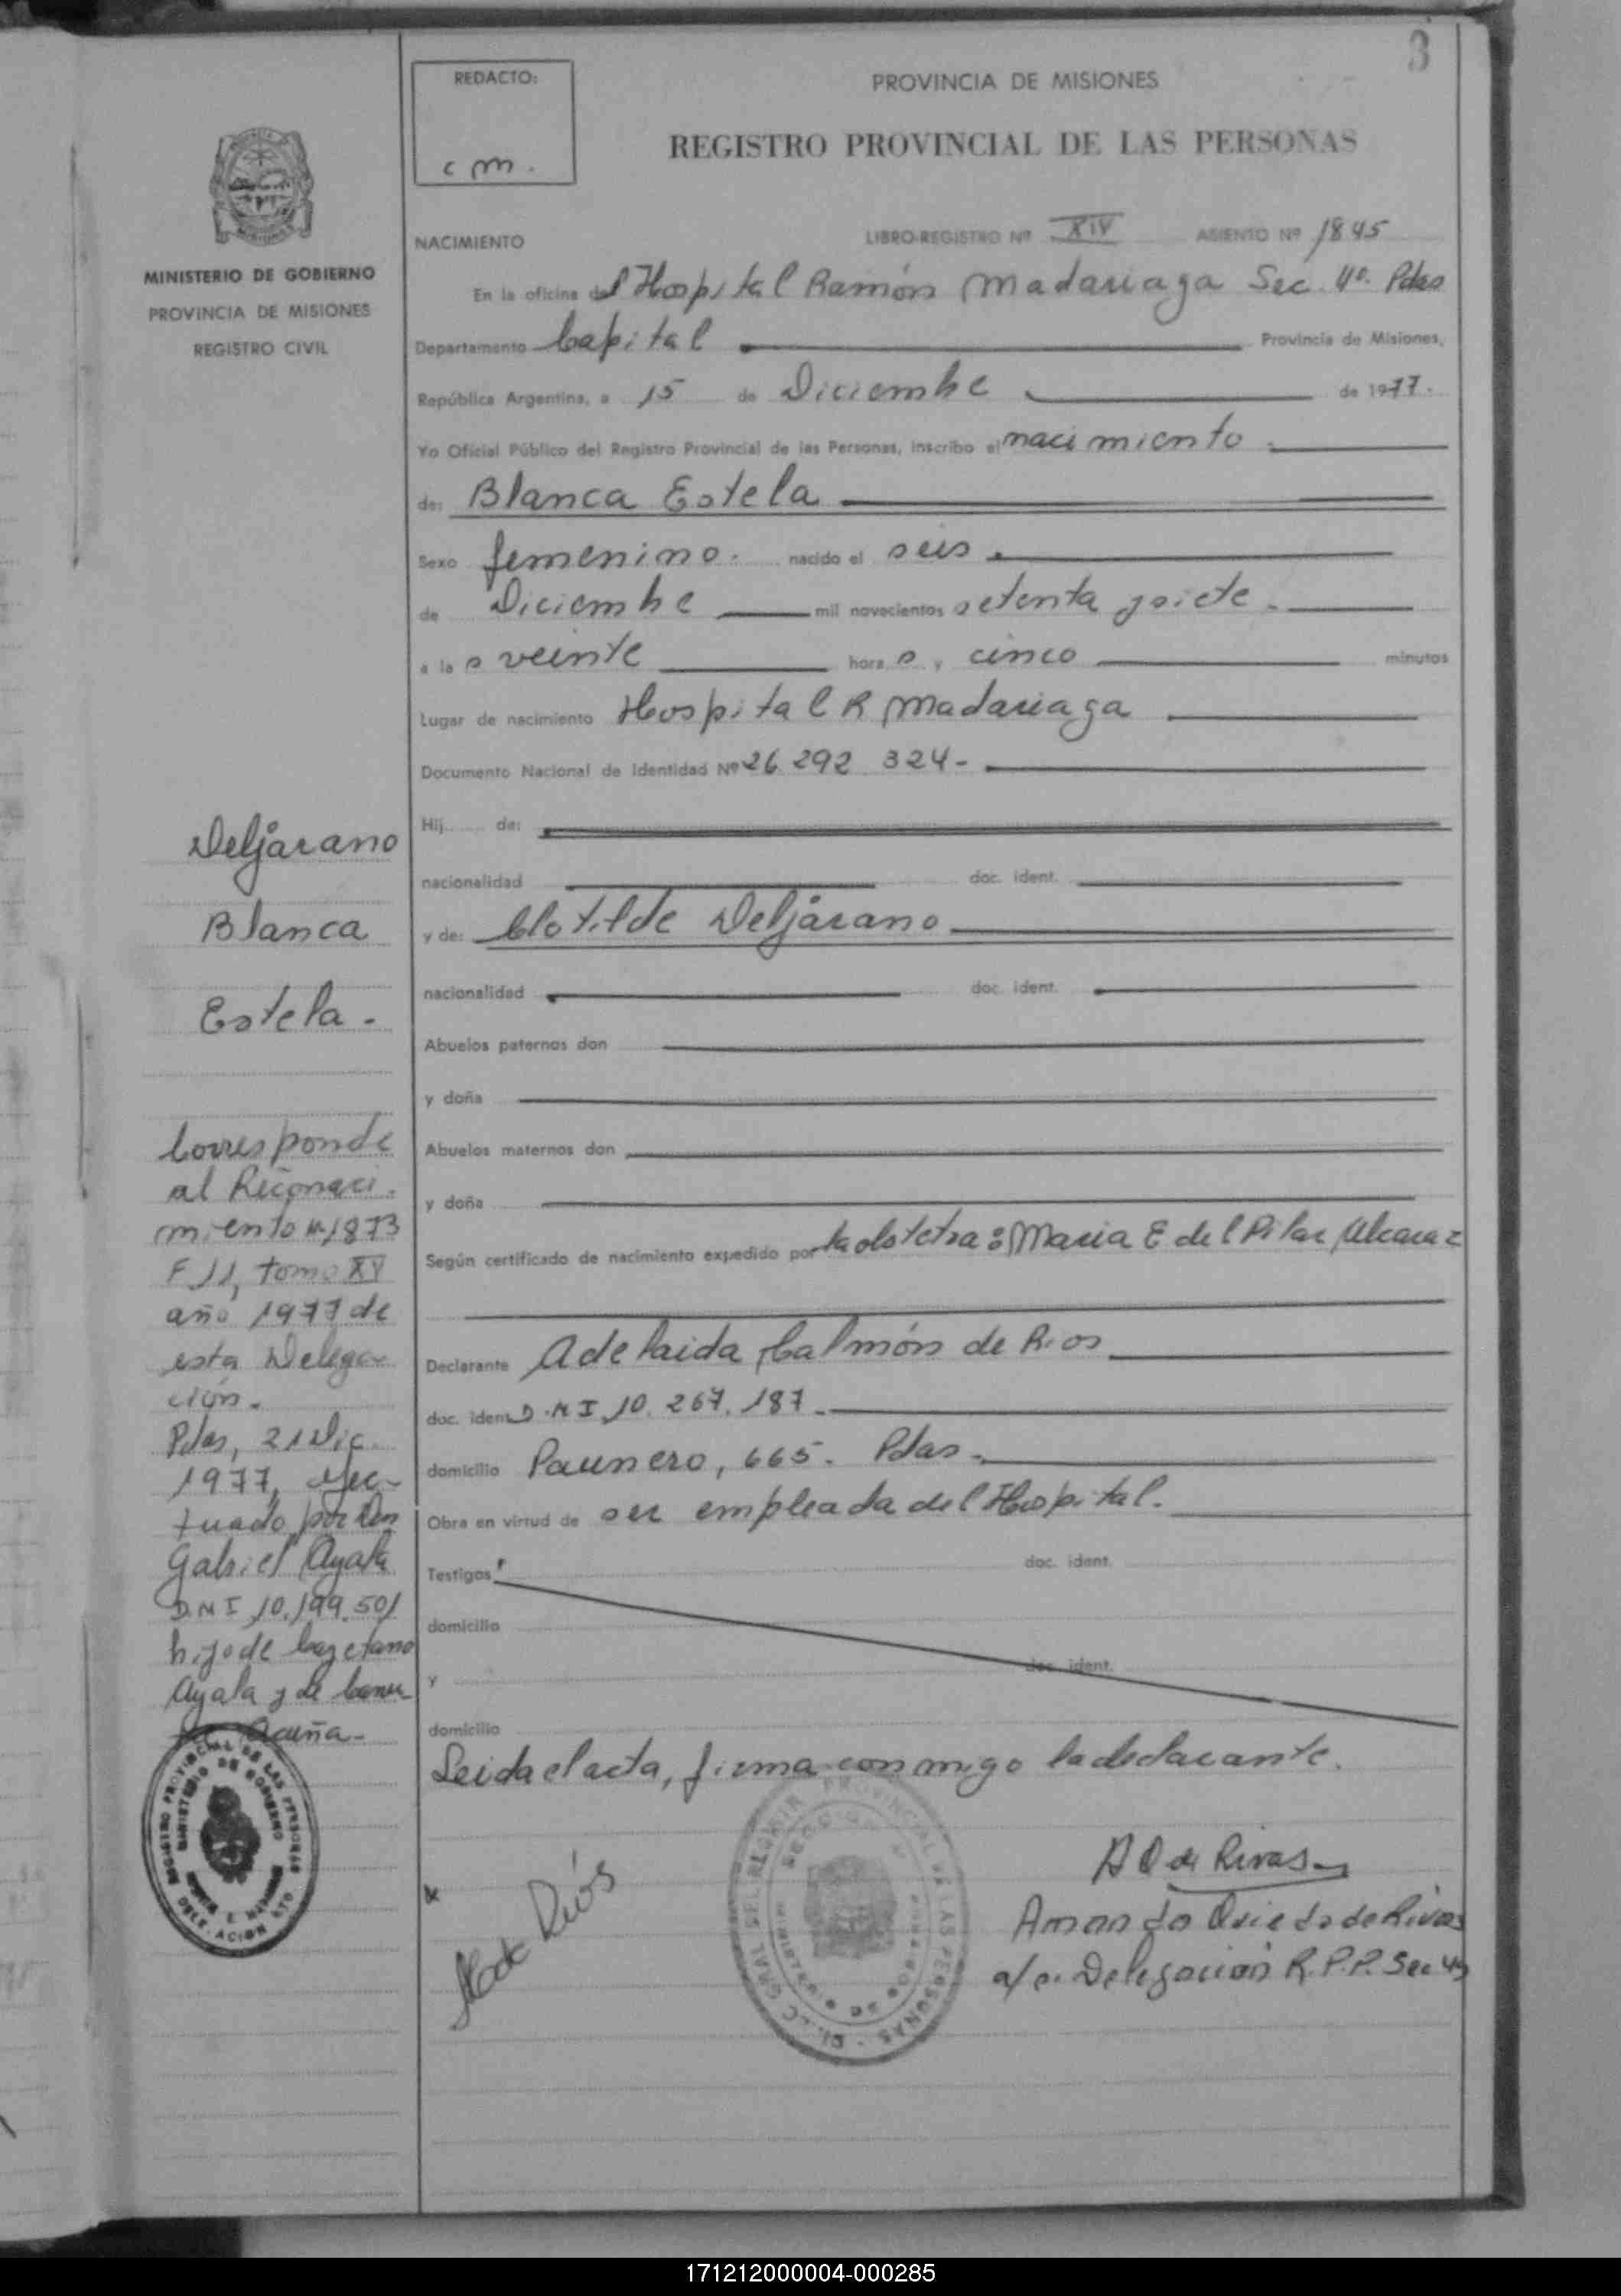 3
REDACTO:
c m.
PROVINCIA DE MISIONES
REGISTRO PROVINCIAL DE LAS PERSONAS
MINISTERIO DE GOBIERNO
PROVINCIA DE MISIONES
REGISTRO CIVIL
NACIMIENTO
LIBRO-REGISTRO Nº XIV ASIENTO Nº 1845
En la oficina del Hospital Ramón Madariaga Sec. 4º. Pdas
Departamento Capital Provincia de Misiones,
República Argentina, a 15 de Diciembre de 1977.
Yo Oficial Público del Registro Provincial de las Personas, inscribo el nacimiento
de: Blanca Estela
Sexo femenino. nacido el seis.
de Diciembre mil novecientos setenta y siete.
a las veinte horas y cinco minutos
Lugar de nacimiento Hospital R Madariaga
Documento Nacional de Identidad Nº 26 292 324-
Hij de:
nacionalidad doc. ident.
y de: Clotilde Deljarano
nacionalidad doc. ident.
Abuelos paternos don
y doña
Abuelos maternos don
y doña
Según certificado de nacimiento expedido por la obstetra: Maria E del Pilar Alcaraz
Declarante Adelaida Calmón de Rios
doc. ident D.N I 10. 267. 187.
domicilio Paunero, 665. Pdas.
Obra en virtud de ser empleada del Hospital.
Testigos doc. ident.
domicilio
y doc. ident.
domicilio
Leida el acta, firma conmigo la declarante.
Deljarano
Blanca
Estela.
Corresponde
al Reconoci.
miento Nº 1873
F 11, tomo XV
año 1977 de
esta Delega-
ción.
Pdas, 21 Dic.
1977, efec-
tuado por Don
Gabriel Ayala
D.N I 10.199.501
hijo de Cayetano
Ayala y de
Acuña-
REGISTRO PROVINCIAL DE LAS PERSONAS
MINISTERIO DE GOBIERNO
Rios
DIREC. GRAL. DEL REGISTR. PROVINCIAL DE LAS PERSONAS
MINISTERIO DE GOBIERNO
A O de Rivas
Oviedo de Rivas
a/c. Delegación R.P.P. Sec 4º
171212000004-000285